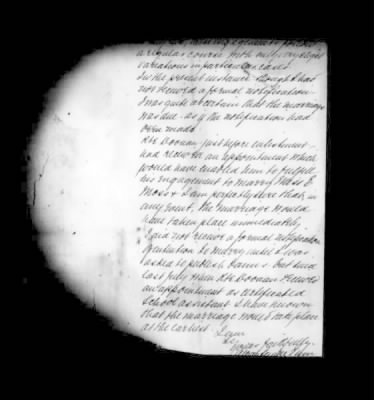 a regular course with only very slight
variations in particular cases
In the present instance though I had
not received a formal notification
I was quite as certain that the marriage
was due - as if the notification had
been made
Noonan just before enlistment -
had received an appointment which
would have enabled him to fulfil
his engagement to marry Miss E
Moss & I am perfectly sure that, in
any event, the marriage would
have taken place immediately.
I did not receive a formal notification
of intention to marry until I was
asked to publish banns, but since
last July when Noonan received
an appointment as certificated
School assistant I have known
that the marriage would take place
at the earliest
I am
Yours faithfully